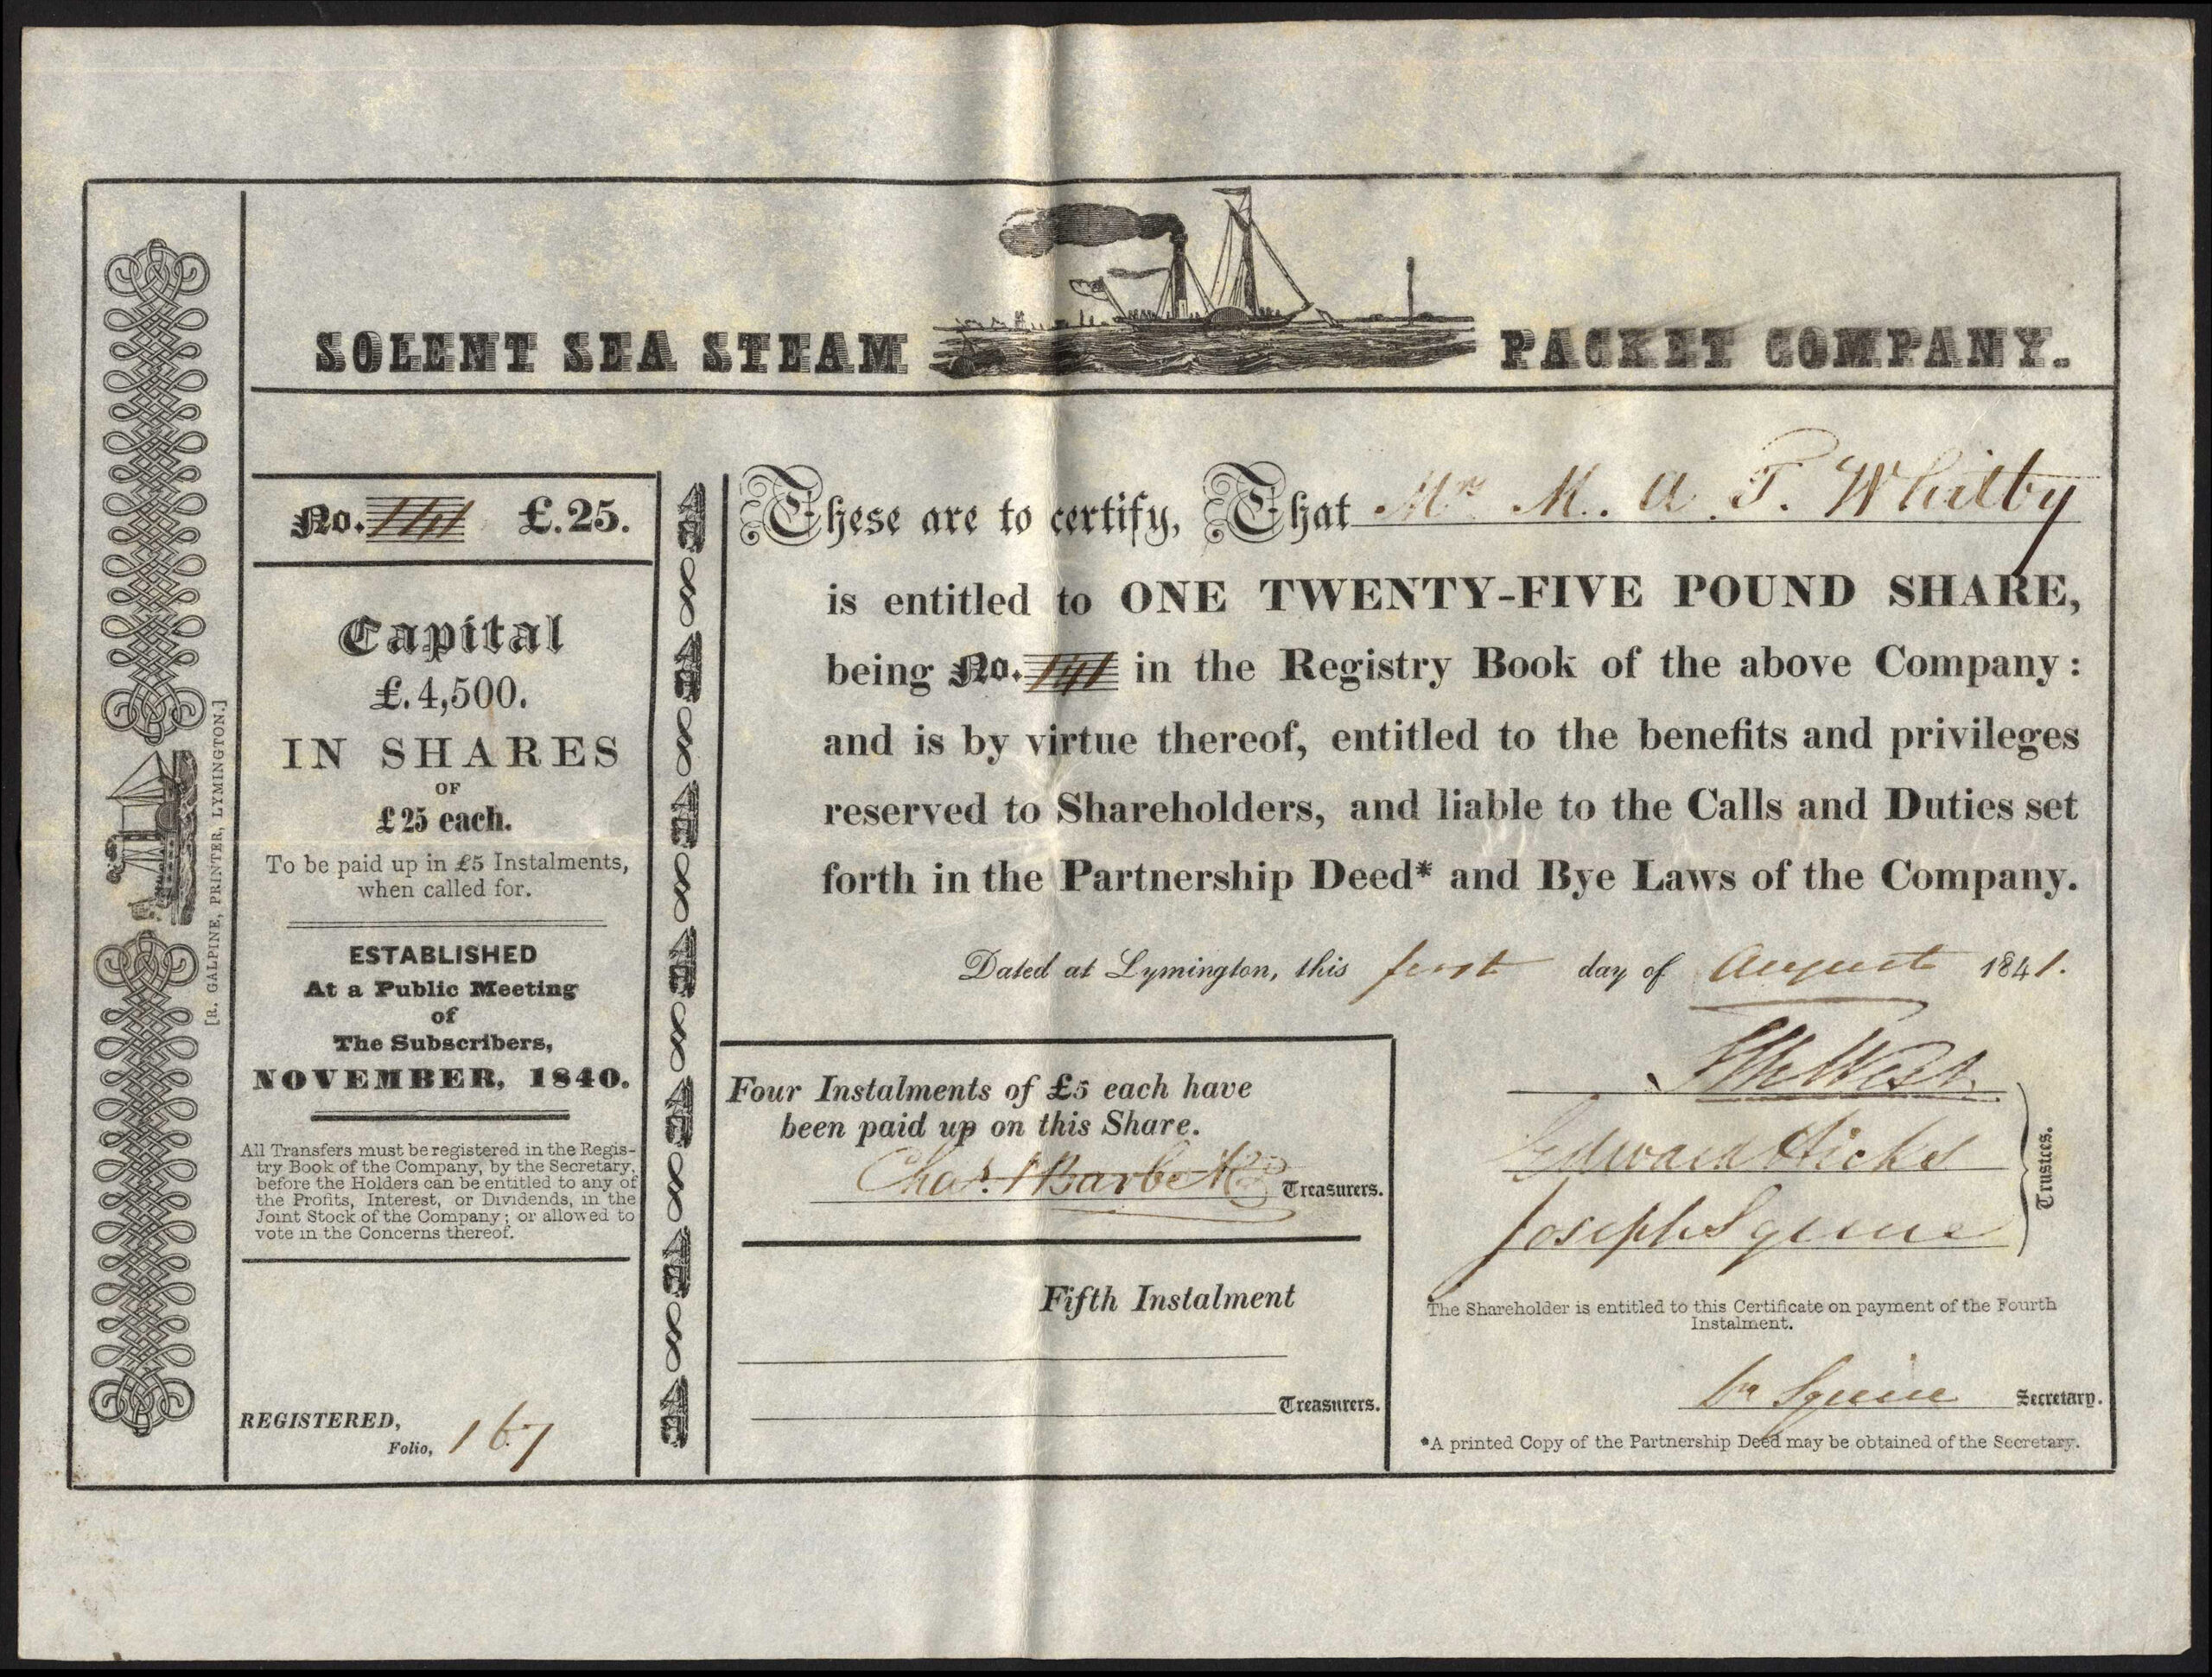 SOLENT SEA STEAM PACKET COMPANY.
No. 141 £.25.
Capital
£.4,500.
IN SHARES
OF
£25 each.
To be paid up in £5 Instalments,
when called for.
ESTABLISHED
At a Public Meeting
of
The Subscribers,
NOVEMBER, 1840.
All Transfers must be registered in the Regis-
try Book of the Company, by the Secretary,
before the Holders can be entitled to any of
the Profits, Interest, or Dividends, in the
Joint Stock of the Company; or allowed to
vote in the Concerns thereof.
REGISTERED,
Folio, 167
[R. GALPINE, PRINTER, LYMINGTON.]
These are to certify, That M. A. T. Whitby
is entitled to ONE TWENTY-FIVE POUND SHARE,
being No. 141 in the Registry Book of the above Company:
and is by virtue thereof, entitled to the benefits and privileges
reserved to Shareholders, and liable to the Calls and Duties set
forth in the Partnership Deed* and Bye Laws of the Company.
Dated at Lymington, this first day of August 1841.
Four Instalments of £5 each have
been paid up on this Share.
Chas. St Barbe Treasurers.
Fifth Instalment
Treasurers.
West
Edward Hicks
Joseph Squire
Trustees.
The Shareholder is entitled to this Certificate on payment of the Fourth
Instalment.
Squire Secretary.
*A printed Copy of the Partnership Deed may be obtained of the Secretary.